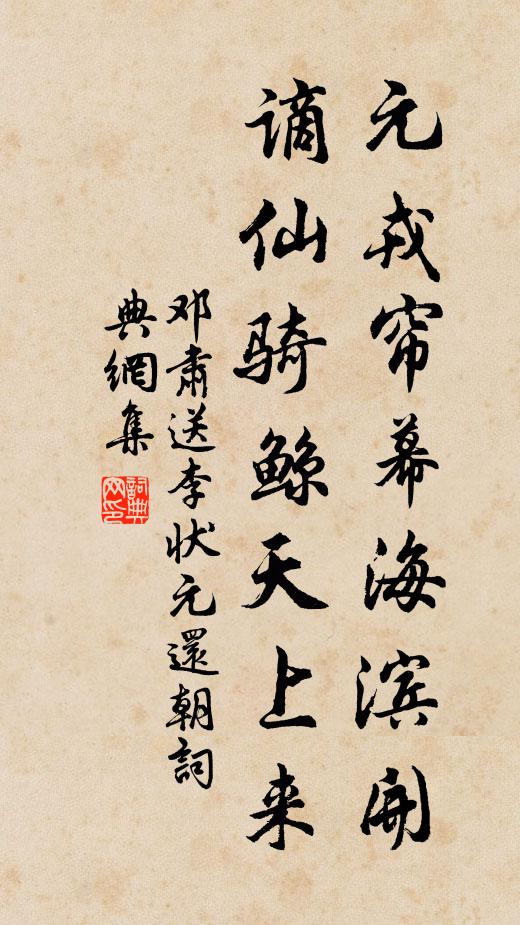 元戎帘幕海滨开
谪仙骑鲸天上来
邓肃送李状元還朝詞
典網集
詞典网印